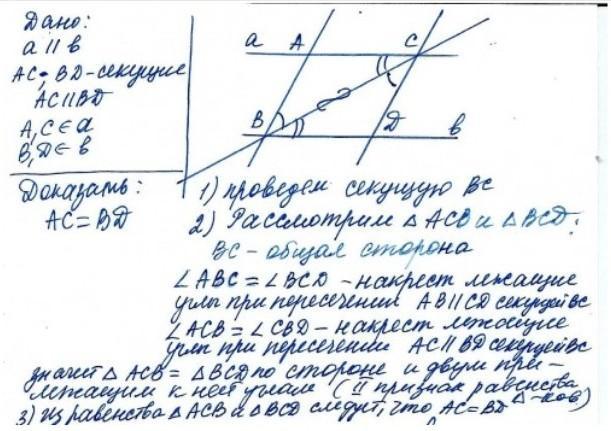 Дано:
a || b
AC; BD - секущие
AC || BD
A, C ∈ a
B, D ∈ b
Доказать:
AC = BD
a A C
B D b
1) проведем секущую BC
2) Рассмотрим △ ACB и △ BCD:
BC - общая сторона
∠ABC = ∠BCD - накрест лежащие
углы при пересечении AB || CD секущей BC
∠ACB = ∠CBD - накрест лежащие
углы при пересечении AC || BD секущей BC
значит △ ACB = △BCD по стороне и двум при-
лежащим к ней углам (II признак равенства
△-ков)
3) Из равенства △ ACB и △ BCD следует, что AC = BD